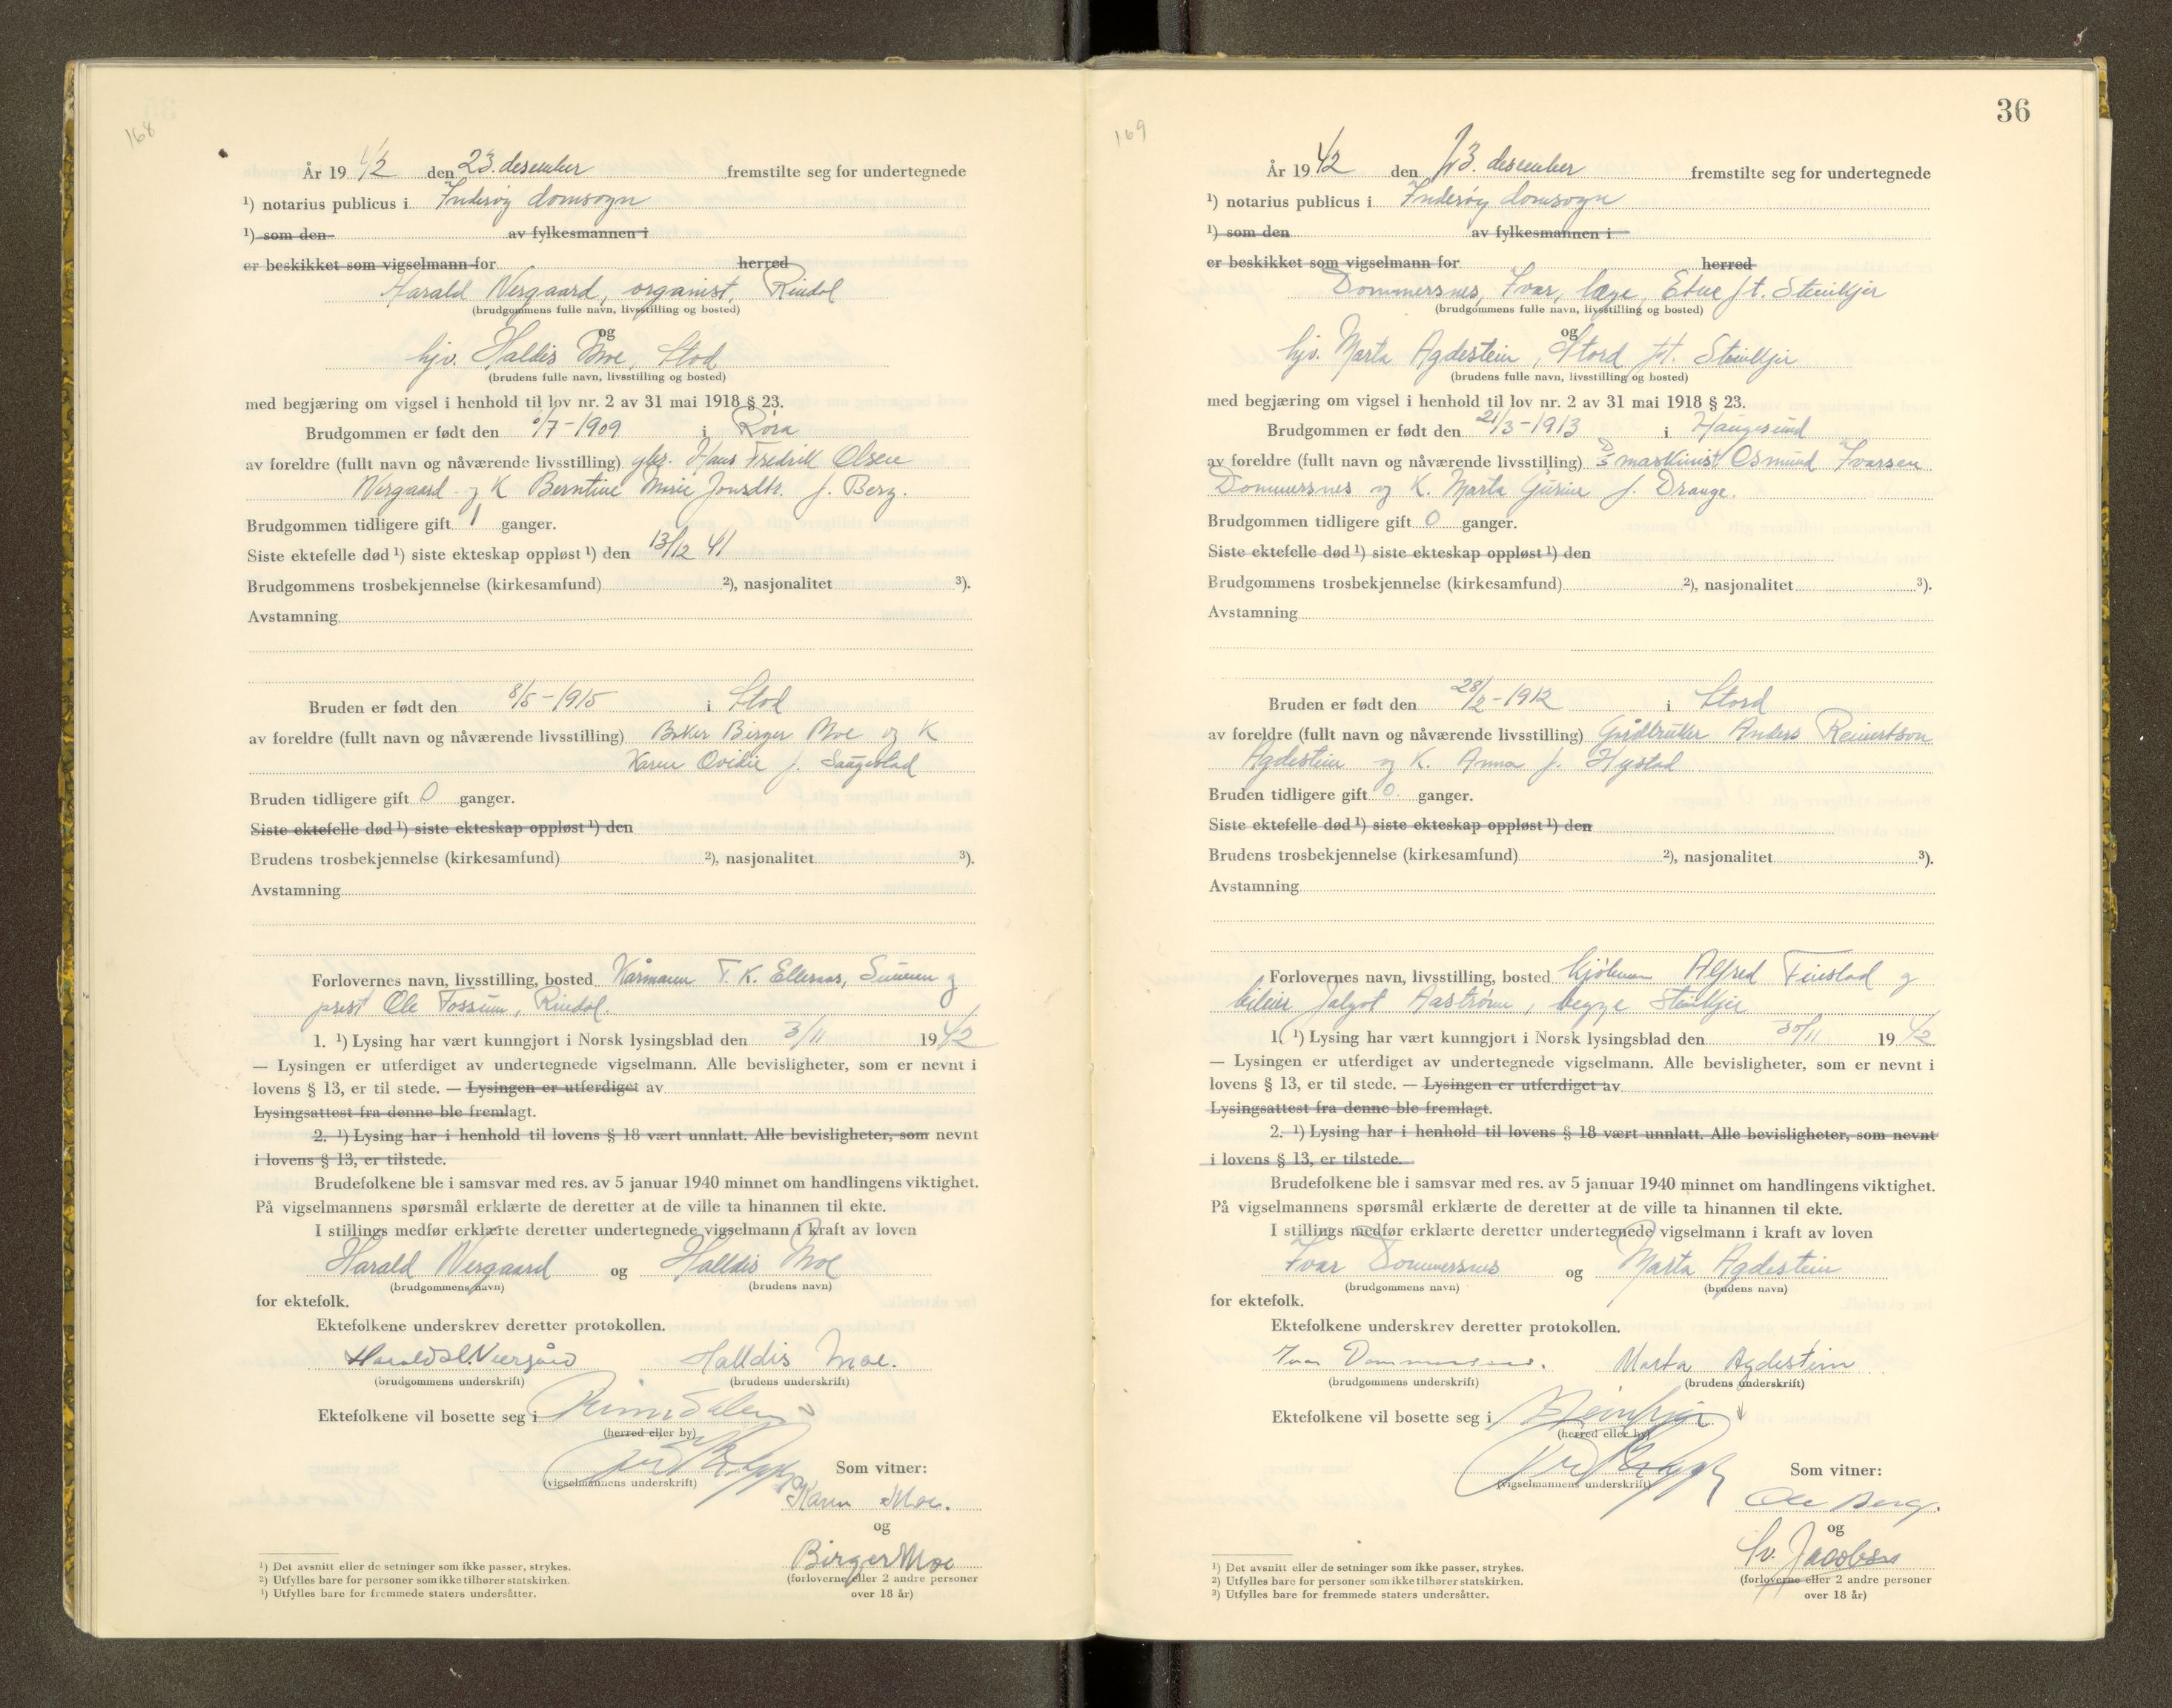 168
År 19 42 den 23. desember fremstilte seg for undertegnede
¹) notarius publicus i Inderøy domsogn
¹) som den av fylkesmannen i
er beskikket som vigselmann for herred
Harald Vergaard, organist, Rindal
(brudgommens fulle navn, livsstilling og bosted)
og
hjv. Haldis Moe, Stod
(brudens fulle navn, livsstilling og bosted)
med begjæring om vigsel i henhold til lov nr. 2 av 31 mai 1918 § 23.
Brudgommen er født den /7-1909 i Røra
av foreldre (fullt navn og nåværende livsstilling) gbr. Hans Fredrik Olsen
Vergaard og K Berntine Marie Jonsdtr. f. Berg.
Brudgommen tidligere gift 1 ganger.
Siste ektefelle død ¹) siste ekteskap oppløst ¹) den 13/12 41
Brudgommens trosbekjennelse (kirkesamfund) ²), nasjonalitet ³).
Avstamning
Bruden er født den 8/5-1915 i Stod
av foreldre (fullt navn og nåværende livsstilling) Baker Birger Moe og K
Karen Ovidie f. Saugestad
Bruden tidligere gift 0 ganger.
Siste ektefelle død ¹) siste ekteskap oppløst ¹) den
Brudens trosbekjennelse (kirkesamfund) ²), nasjonalitet ³).
Avstamning
Forlovernes navn, livsstilling, bosted T. K. og
prest Ole Fossum, Rindal.
1. ¹) Lysing har vært kunngjort i Norsk lysingsblad den 3/11 19 42
— Lysingen er utferdiget av undertegnede vigselmann. Alle bevisligheter, som er nevnt i
lovens § 13, er til stede. — Lysingen er utferdiget av
Lysingsattest fra denne ble fremlagt.
2. ¹) Lysing har i henhold til lovens § 18 vært unnlatt. Alle bevisligheter, som nevnt
i lovens § 13, er tilstede.
Brudefolkene ble i samsvar med res. av 5 januar 1940 minnet om handlingens viktighet.
På vigselmannens spørsmål erklærte de deretter at de ville ta hinannen til ekte.
I stillings medfør erklærte deretter undertegnede vigselmann i kraft av loven
Harald Vergaard og Halldis Moe
(brudgommens navn) (brudens navn)
for ektefolk.
Ektefolkene underskrev deretter protokollen.
Harald Halldis Moe.
(brudgommens underskrift) (brudens underskrift)
Ektefolkene vil bosette seg i
(herred eller by)
(vigselmannens underskrift)
Som vitner:
Karen Moe.
og
Birger Moe
(forloverne eller 2 andre personer
over 18 år)
¹) Det avsnitt eller de setninger som ikke passer, strykes.
²) Utfylles bare for personer som ikke tilhører statskirken.
³) Utfylles bare for fremmede staters undersåtter.
36
169
År 19 42 den 23. desember fremstilte seg for undertegnede
¹) notarius publicus i Inderøy domsogn
¹) som den av fylkesmannen i
er beskikket som vigselmann for herred
Dommersnes, Ivar, læge, Etne f.t. Steinkjer
(brudgommens fulle navn, livsstilling og bosted)
og
hjv. Marta Agdestein, Stord f.t. Steinkjer
(brudens fulle navn, livsstilling og bosted)
med begjæring om vigsel i henhold til lov nr. 2 av 31 mai 1918 § 23.
Brudgommen er født den 21/3-1913 i Haugesund
av foreldre (fullt navn og nåværende livsstilling) D/S maskinist Osmund Ivarsen
Dommersnes og K. Marta Gurine f. Drange.
Brudgommen tidligere gift 0 ganger.
Siste ektefelle død ¹) siste ekteskap oppløst ¹) den
Brudgommens trosbekjennelse (kirkesamfund) ²), nasjonalitet ³).
Avstamning
Bruden er født den 28/2-1912 i Stord
av foreldre (fullt navn og nåværende livsstilling) Gårdbruker Anders Reinertson
Agdestein og K. Anna f. Hystad
Bruden tidligere gift 0. ganger.
Siste ektefelle død ¹) siste ekteskap oppløst ¹) den
Brudens trosbekjennelse (kirkesamfund) ²), nasjonalitet ³).
Avstamning
Forlovernes navn, livsstilling, bosted Alfred Finstad og
Aastrøm, begge Steinkjer
1. ¹) Lysing har vært kunngjort i Norsk lysingsblad den 30/11 19 42
— Lysingen er utferdiget av undertegnede vigselmann. Alle bevisligheter, som er nevnt i
lovens § 13, er til stede. — Lysingen er utferdiget av
Lysingsattest fra denne ble fremlagt.
2. ¹) Lysing har i henhold til lovens § 18 vært unnlatt. Alle bevisligheter, som nevnt
i lovens § 13, er tilstede.
Brudefolkene ble i samsvar med res. av 5 januar 1940 minnet om handlingens viktighet.
På vigselmannens spørsmål erklærte de deretter at de ville ta hinannen til ekte.
I stillings medfør erklærte deretter undertegnede vigselmann i kraft av loven
Ivar Dommersnes og Marta Agdestein
(brudgommens navn) (brudens navn)
for ektefolk.
Ektefolkene underskrev deretter protokollen.
Ivar Dommersnes. Marta Agdestein
(brudgommens underskrift) (brudens underskrift)
Ektefolkene vil bosette seg i Steinkjer
(herred eller by)
(vigselmannens underskrift)
Som vitner:
Ole Berg.
og
Sv. Jacobsen
(forloverne eller 2 andre personer
over 18 år)
¹) Det avsnitt eller de setninger som ikke passer, strykes.
²) Utfylles bare for personer som ikke tilhører statskirken.
³) Utfylles bare for fremmede staters undersåtter.